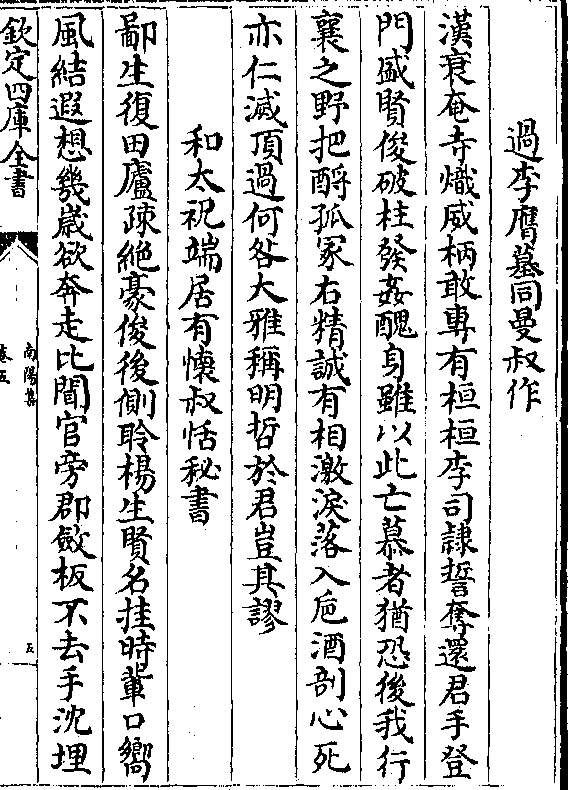 過李膺墓同曼叔作
漢衰奄寺熾威柄敢專有桓桓李司隸誓奪還君手登
門盛賢俊破柱發姦醜身雖以此亡慕者猶恐後我行
襄之野把酹孤冢右精誠有相激淚落入巵酒剖心死
亦仁滅頂過何咎大雅稱明哲於君豈其謬
和太祝端居有懷叔恬秘書
鄙生復田廬疎絶豪俊後側聆楊生賢名挂時輩口嚮
風結遐想幾歲欲奔走比聞官旁郡斂板不去手沈埋
欽定四庫全書
南陽集
卷五
五